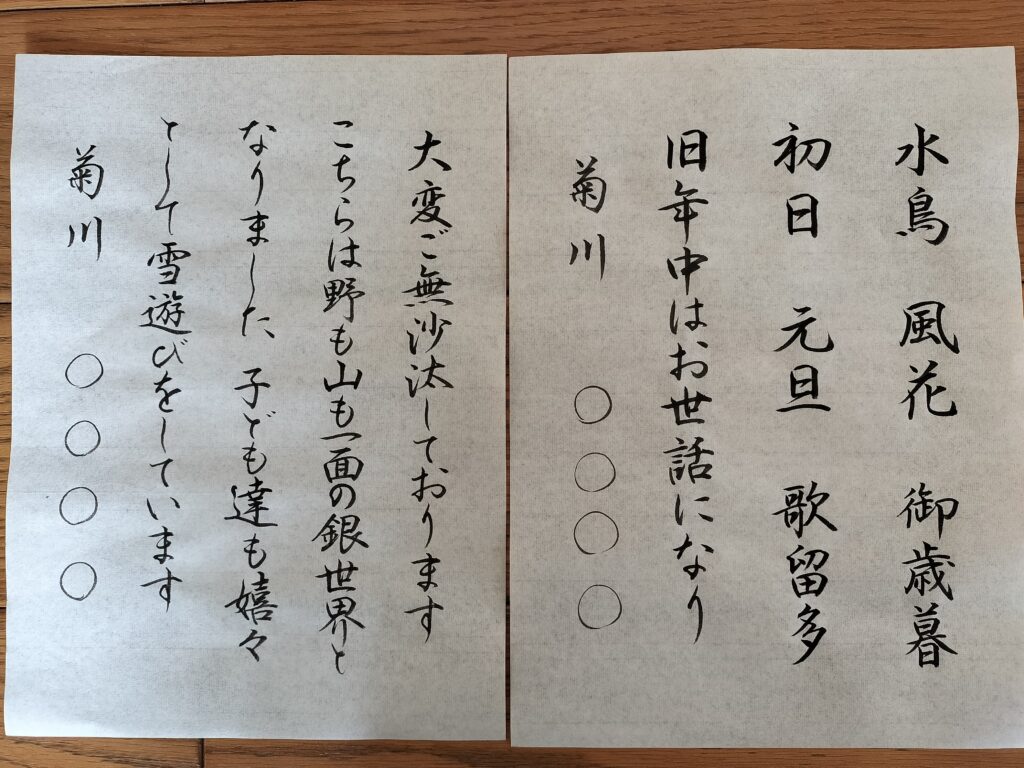 水鳥 風花 御歳暮
初日 元旦 歌留多
旧年中はお世話になり
菊川 ○○○○
大変ご無沙汰しております
こちらは野も山も一面の銀世界と
なりました、子ども達も嬉々
として雪遊びをしています
菊川 ○○○○